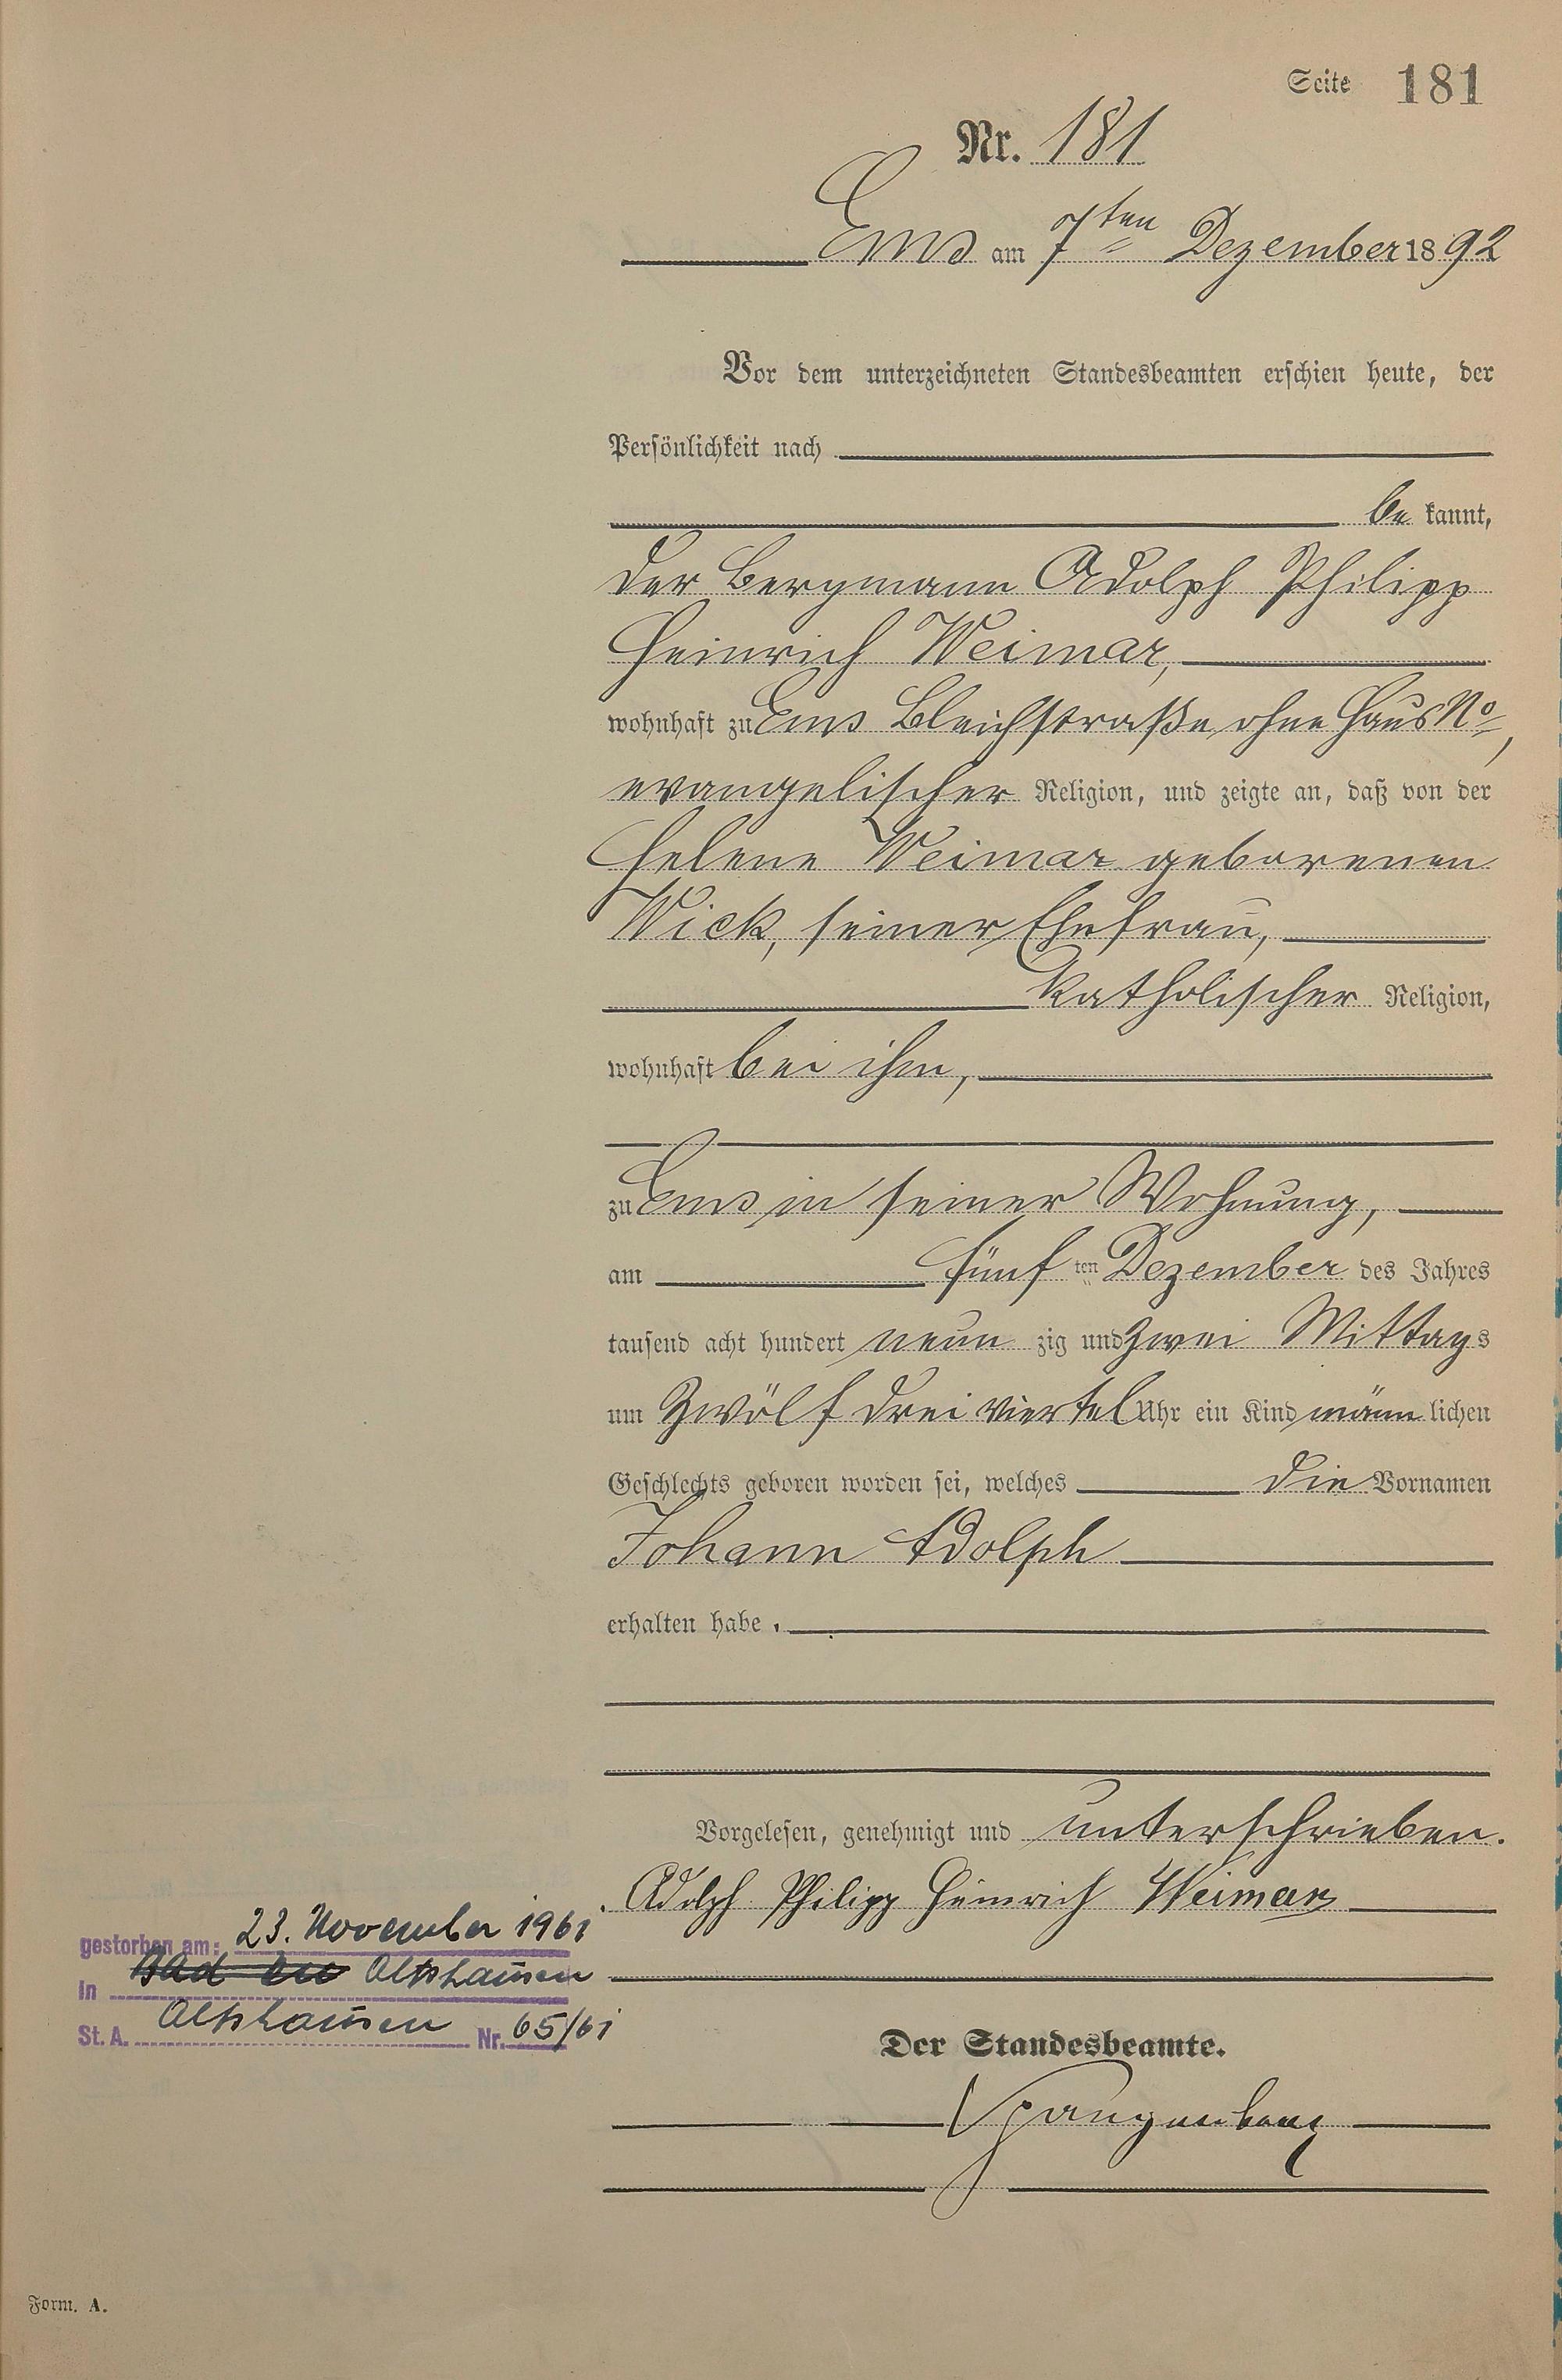 Seite 181
Nr. 181
Ems am 7ten Dezember 1892
Vor dem unterzeichneten Standesbeamten erschien heute, der
Persönlichkeit nach
be kannt,
der Bergmann Adolph Philipp
Heinrich Weimar,
wohnhaft zu Ems Bleichstraße ohne Haus No,
evangelischer Religion, und zeigte an, daß von der
Helene Weimar geborenen
Wick, seiner Ehefrau,
katholischer Religion,
wohnhaft bei ihm,
zu Ems in seiner Wohnung,
am fünf ten Dezember des Jahres
tausend acht hundert neun zig und zwei Mittags
um zwölf drei viertel Uhr ein Kind männ lichen
Geschlechts geboren worden sei, welches die Vornamen
Johann Adolph
erhalten habe.
Vorgelesen, genehmigt und unterschrieben.
Adolph Philipp Heinrich Weimar
gestorben am: 23. November 1961
In Altshausen
St. A. Altshausen Nr. 65/61
Der Standesbeamte.
Form. A.